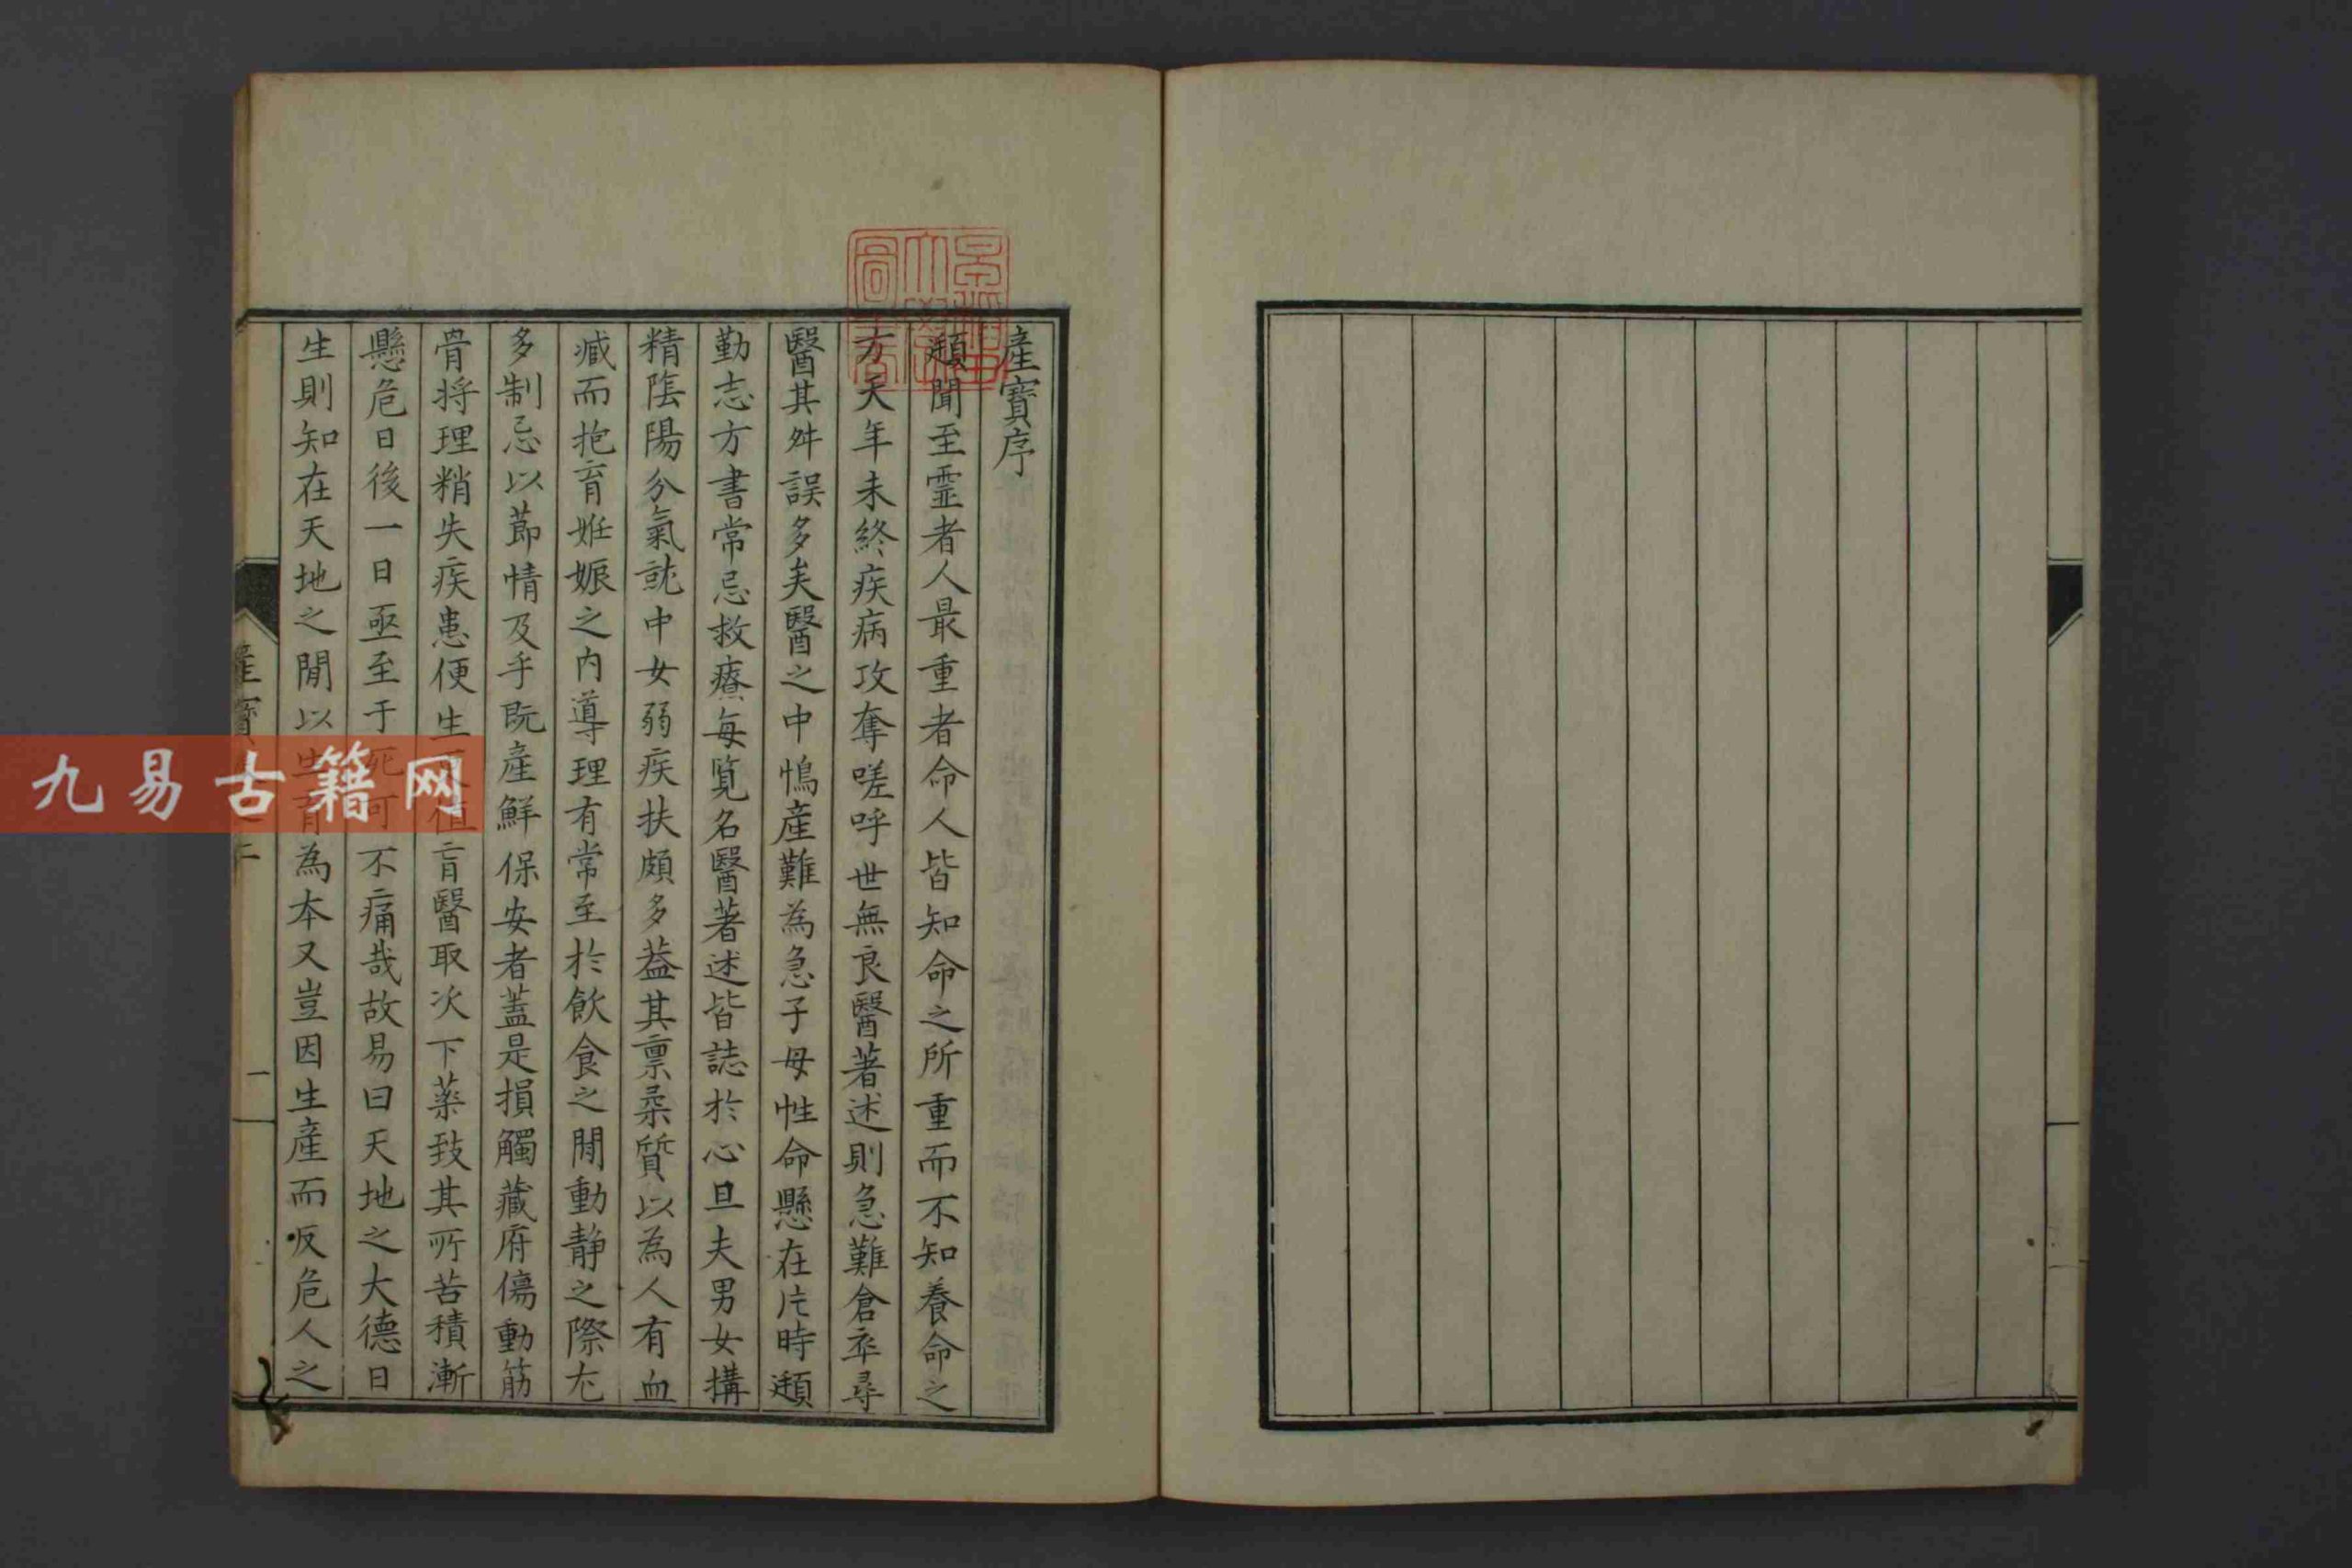 產寶序
頲聞至霊者人最重者命人皆知命之所重而不知養命之
方天年未終疾病攻奪嗟呼世無良醫著述則急難倉卒尋
醫其舛誤多矣醫之中惟產難為急子母性命懸在片時頲
勤志方書常忌救療每覧名醫著述皆誌於心且夫男女搆
精陰陽分氣就中女弱疾扶頗多蓋其禀柔質以為人有血
臧而抱育姙娠之内導理有常至於飲食之間動静之際尤
多制忌以莭情及乎既產鮮保安者蓋是損觸藏府傷動筋
骨将理稍失疾患便生值盲醫取次下藥致其所苦積漸
懸危日後一日亟至于死可不痛哉故易曰天地之大德曰
生則知在天地之間以生育為本又豈因生產而反危人之
產寶
一
九易古籍网